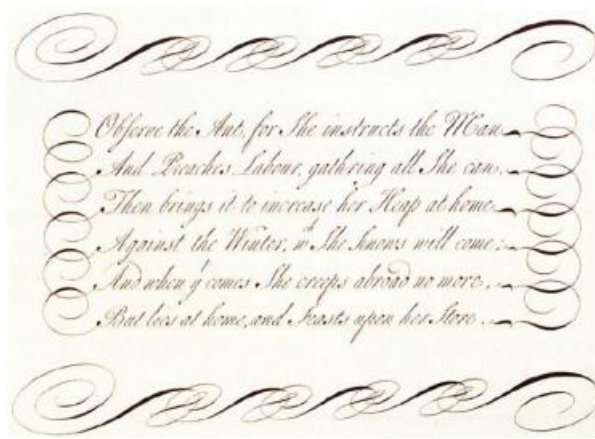 Observe the Ant, for She instructs the Man
And Preaches Labour, gath'ring all She can.
Then brings it to increase her Heap at home
Against the Winter, wᶜʰ She knows will come:
And when yᵗ comes She creeps abroad no more,
But lies at home, and Feasts upon her Store.